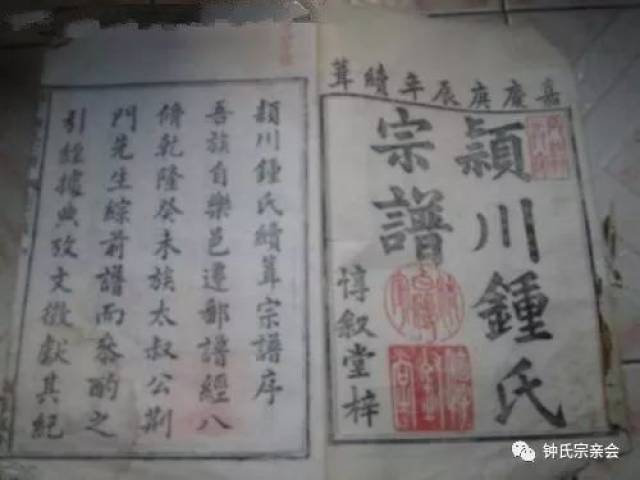 嘉慶庚辰年續葺
頴川鍾氏
宗譜
惇叙堂梓
頴川鍾氏續葺宗譜序
吾族自樂邑遷鄀譜經八
脩乾隆癸未族太叔公荆
門先生綜前譜而叅酌之
引經據典攷文徵獻其紀
钟氏宗亲会